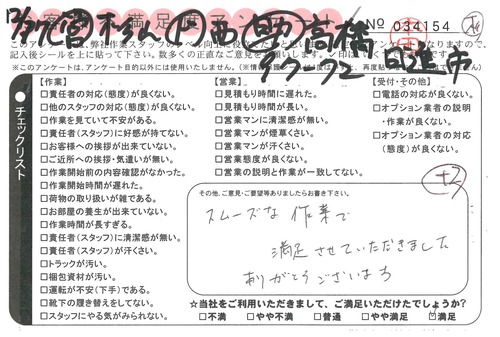 お客様満足度アンケート
No 034154
【作業】
□責任者の対応(態度)が良くない。
□他のスタッフの対応(態度)が良くない。
□作業を見ていて不安がある。
□責任者(スタッフ)に好感が持てない。
□お客様への挨拶が出来ていない。
□ご近所への挨拶・気遣いが無い。
□作業開始前の内容確認がなかった。
□作業開始時間が遅れた。
□荷物の取り扱いが雑である。
□お部屋の養生が出来ていない。
□作業時間が長すぎる。
□責任者(スタッフ)に清潔感が無い。
□責任者(スタッフ)が汗くさい。
□トラックが汚い。
□梱包資材が汚い。
□運転が不安(下手)である。
□靴下の履き替えをしてない。
□スタッフにやる気がみられない。
【営業】
□見積もり時間に遅れた。
□見積もり時間が長い。
□営業マンに清潔感が無い。
□営業マンが煙草くさい。
□営業マンが汗くさい。
□営業態度が良くない。
□営業の説明と作業が一致してない。
【受付・その他】
□電話の対応(態度)が良くない
□オプション業者の説明
・作業が良くない。
□オプション業者の対応
(態度)が良くない。
チェックリスト
その他、ご意見・ご要望等ありましたらお書き下さい。
スムーズな作業で
満足させていただきました
ありがとうございます
☆当社をご利用いただきまして、ご満足いただけたでしょうか?
□不満 □やや不満 □普通 □やや満足 ☑満足